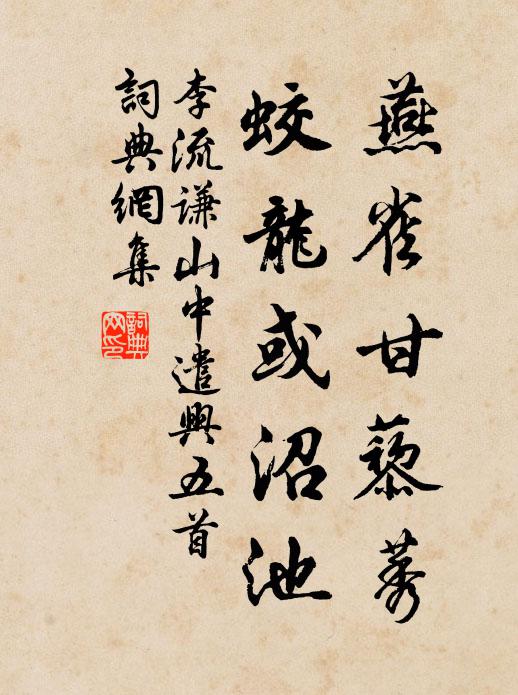 燕雀甘藜莠
蛟龍或沼池
李流謙山中遣興五首
詞典網集
詞典网印